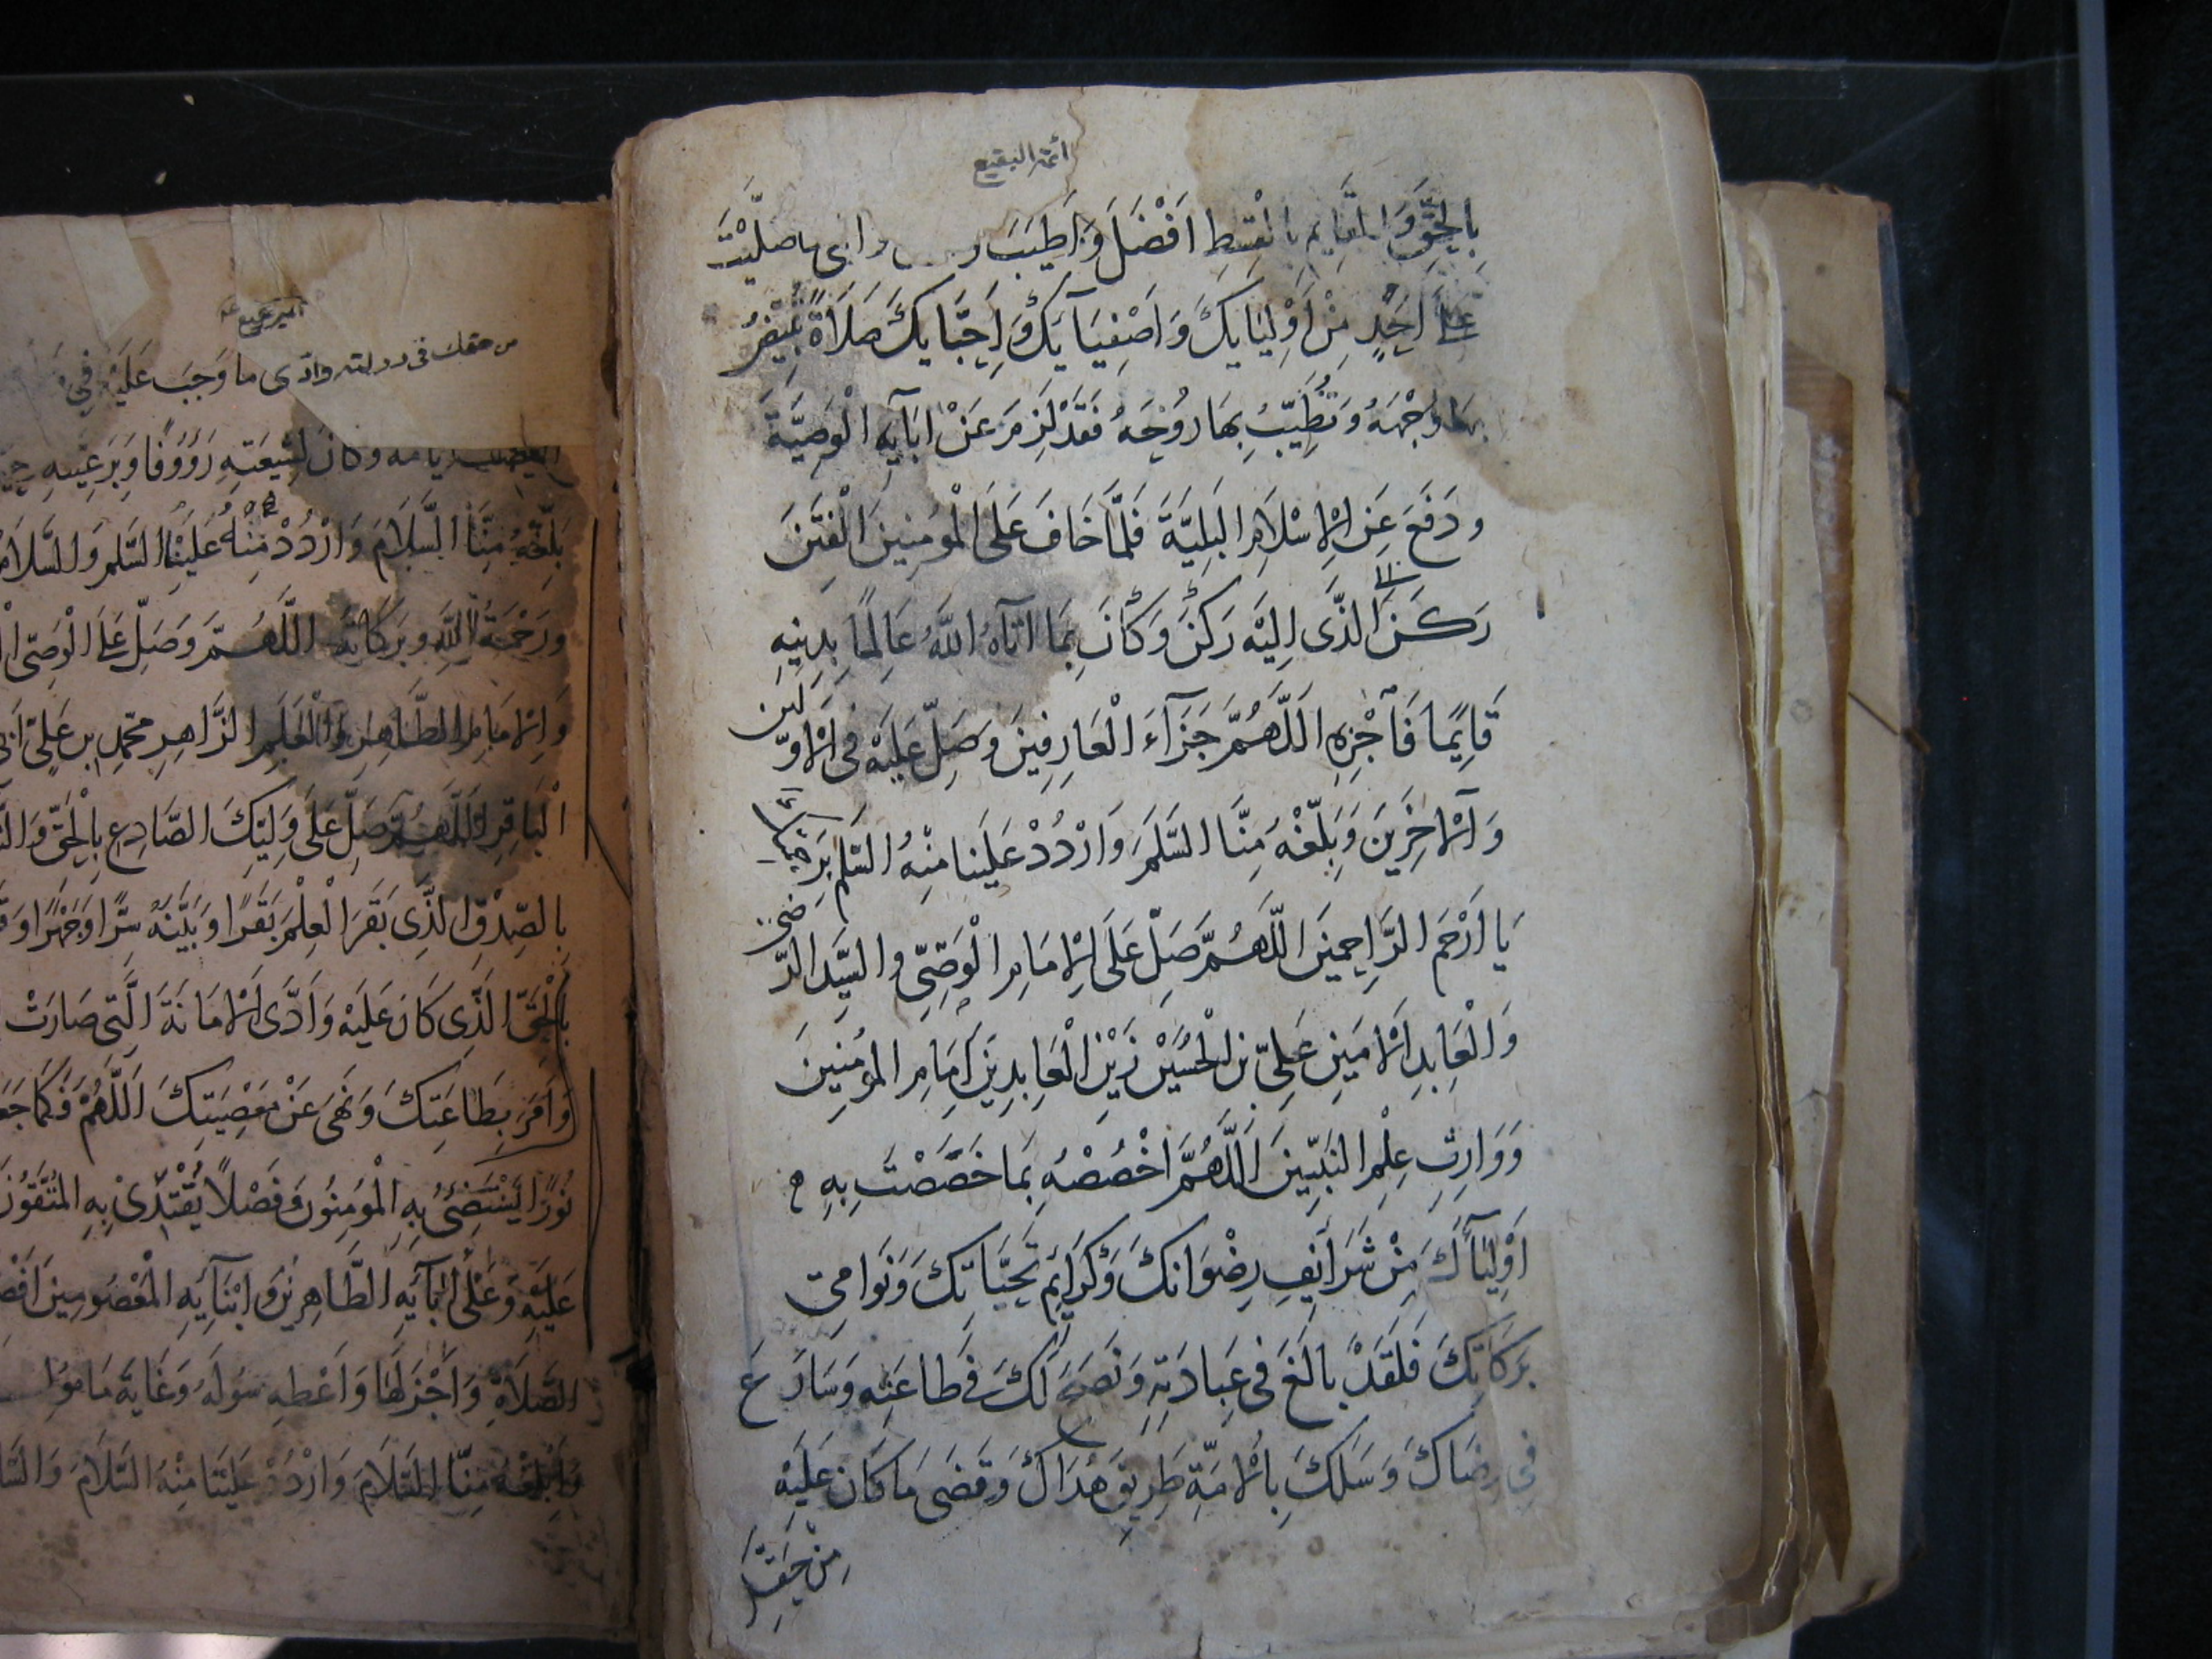 أئمة البقيع
بِالْحَقِّ وَالْقَايِمِ بِالْقِسْطِ اَفْضَلَ وَاَطْيَبَ صَلَّيْتَ
عَلَى اَحَدٍ مِنْ اَوْلِيَايِكَ وَاَصْفِيَايِكَ وَاَحِبَّايِكَ صَلَاةً
بِهَا وَجْهَهُ وَتُطَيِّبُ بِهَا رُوحَهُ فَقَدْ لَزِمَ عَنْ ابَآيِهِ الْوَصِيَّةَ
ودَفَعَ عَنِ الْاِسْلَامِ الْبَلِيَّةَ فَلَمَّا خَافَ عَلَى الْمُؤمِنِينَ الْفِتَنَ
رَكَنَ الَّذَى اِلَيْهِ رَكَنَ وَكَانَ بِمَا اتَاهُ اللّهُ عَالِمًا بِدِينِهِ
قَايِمًا فَاَجْزِهِ اللَّهُمَّ جَزَآءَ الْعَارِفِينَ وَصَلِّ عَلَيْهِ فى الْاَوَّلين
وَالْاخِرِينَ وَبَلِّغْهُ مِنَّا السَّلمَ وَارْدُدْ عَلَينا مِنْهُ السَّلم بِرَحْمَتِكَ
يَا اَرْحَمَ الرَّاحِمِينَ اللّهُمَّ صَلِّ عَلَى الْاِمَامِ الْوَصِىِّ والسَّيِّد الرَّضِىّ
وَالْعَابِدِ الْاَمينِ عَلِىّ بنِ الْحُسَيْنِ زَيْنِ الْعَابِدِينَ اِمَامِ المؤمِنِينَ
وَوَارِثِ عِلْمِ النَبِيِّينَ اَللَّهُمَّ اخْصُصْهُ بِمَا خَصَصْتَ بِهِ
اَوْلِيَآءَكَ مِنْ شَرَايِفِ رِضْوَانِكَ وَكَرَايِمِ تَحِيَّاتِكَ وَنَوَامِى
بَرَكَاتِكَ فَلَقَدْ بالَغَ فى عِبَادَتِهِ وَنَصَحَ لَكَ فى طاعَتِهِ وَسَارَعَ
فِى رِضَاكَ وَسَلَكَ بِالْاُمَّةِ طَرِيقَ هُدَاكَ وَقَضَى مَا كَانَ عَلَيْهِ
مِنْ حَقِّكَ
من حقك فى دولته وادّى ما وَجَبَ عَلَيْهِ فِى
وكَانَ لِشِيعَتِهِ رَؤُوفًا وَبِرَعِيَّتِهِ
بَلِّغْهُ مِنَّا السَّلَامَ وَارْدُدْ مِنْهُ عَلَيْنَا السَّلمَ وَالسَّلَامُ
ورَحْمَةُ اللَّهِ وبَرَكَاتُهُ اللَّهُمَّ وَصَلِّ عَلَى الْوَصِىّ
وَالْاِمَامِ الطَّاهِرِ وَالْعَلَمِ الزَّاهِرِ مُحَمَّدِ بنِ عَلِىّ
الْبَاقِرِ اللَّهُمَّ صَلِّ عَلَى وَلِيِّكَ الصَّادِعِ بِالْحَقِّ
بِالصِّدْقِ الَّذِى بَقَرَ الْعِلْمَ بَقْرًا وَبَيَّنَهُ سِرًّا وَجَهْرًا
بِالْحَقِّ الَّذِى كَانَ عَلَيْهِ وَاَدَّى الْاَمَانَةَ الَّتى صَارَتْ
وَاَمَرَ بِطَاعَتِكَ وَنَهَى عَنْ مَعْصِيَتِكَ اَللَّهُمَّ فَكَمَا
نُورًا يَسْتَضِىُ بِهِ الْمُؤمِنُونَ وَفَضْلًا يَقْتَدِى بِهِ الْمُتَّقُونَ
عَلَيْهِ وَعَلَى ابَآيِهِ الطَّاهِرِينَ وَابْنَايِهِ الْمَعْصُومِينَ
الصَّلَاةِ وَاَجْزَلَهَا وَاَعْطِهِ سُولَهُ وَغَايَةَ مَامُولِهِ
وَاَبْلِغْهُ مِنَّا السَّلَامَ وَارْدُدْ عَلَيْنَا مِنْهُ السَّلَامَ